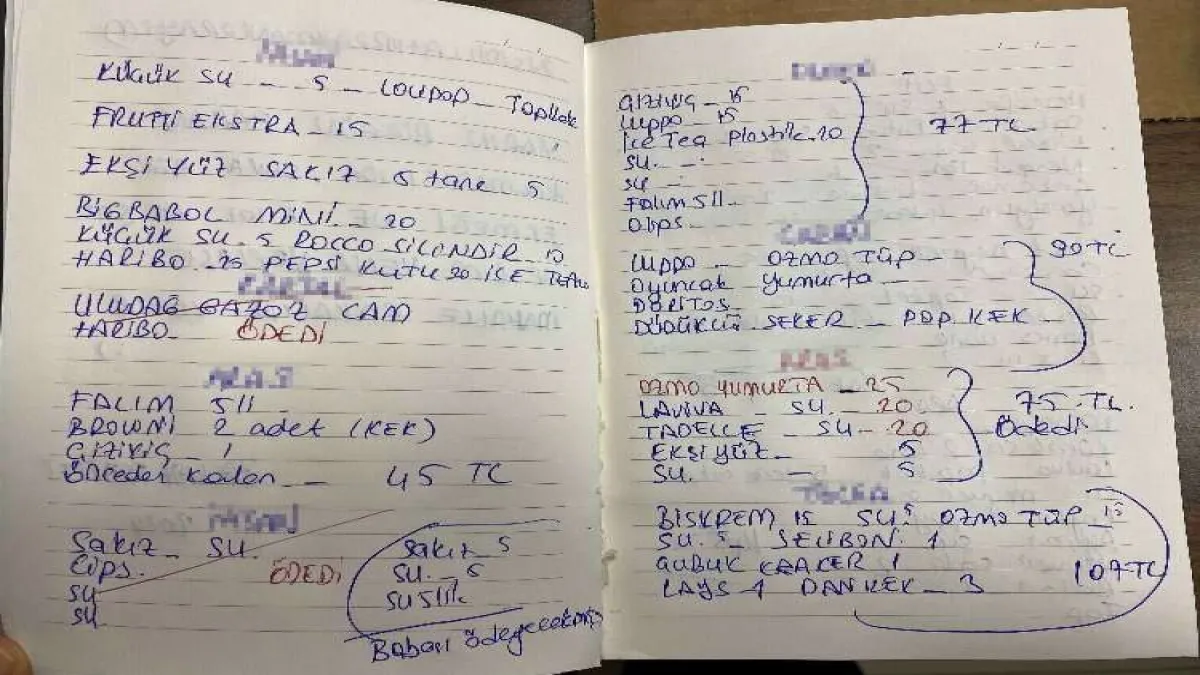 KÜÇÜK SU - 5 - LOLİPOP - Topkek
FRUTTİ EKSTRA - 15
EKŞİ YÜZ SAKIZ 5 tane 5
BİGBABOL MİNİ - 20
KÜÇÜK SU. 5 ROCCO SİLENDİR - 10
HARİBO - 25 PEPSİ KUTU 20 ICE TEA
ULUDAĞ GAZOZ CAM
HARİBO - ÖDEDİ
FALIM 5'li
BROWNİ 2 adet (KEK)
ÇİZİVİÇ - 1
Önceden kalan - 45 TL
Sakız - SU.
Cips.
SU
SU
ÖDEDİ
Sakız 5
SU. - 5
Susluk
Babası ödeyecekmiş
ÇİZİVİÇ - 15
Luppo - 15
Ice Tea plastik 20
SU. -
SU -
FALIM 5'li -
77 TL
Luppo - OZMO TÜP -
Oyuncak yumurta -
DORİTOS
DÜDÜKLÜ ŞEKER - POP KEK
90 TL
OZMO YUMURTA - 25
LAVİVA - SU. - 20
TADELLE - SU - 20
EKŞİ YÜZ - 5
SU. - 5
75 TL.
Ödedi
BİSKREM 15 SU 5 OZMO TÜP - 15
SU. 5 - SELİBON. 1
ÇUBUK KRAKER 1
LAYS 1 DANKEK - 3
107 TL